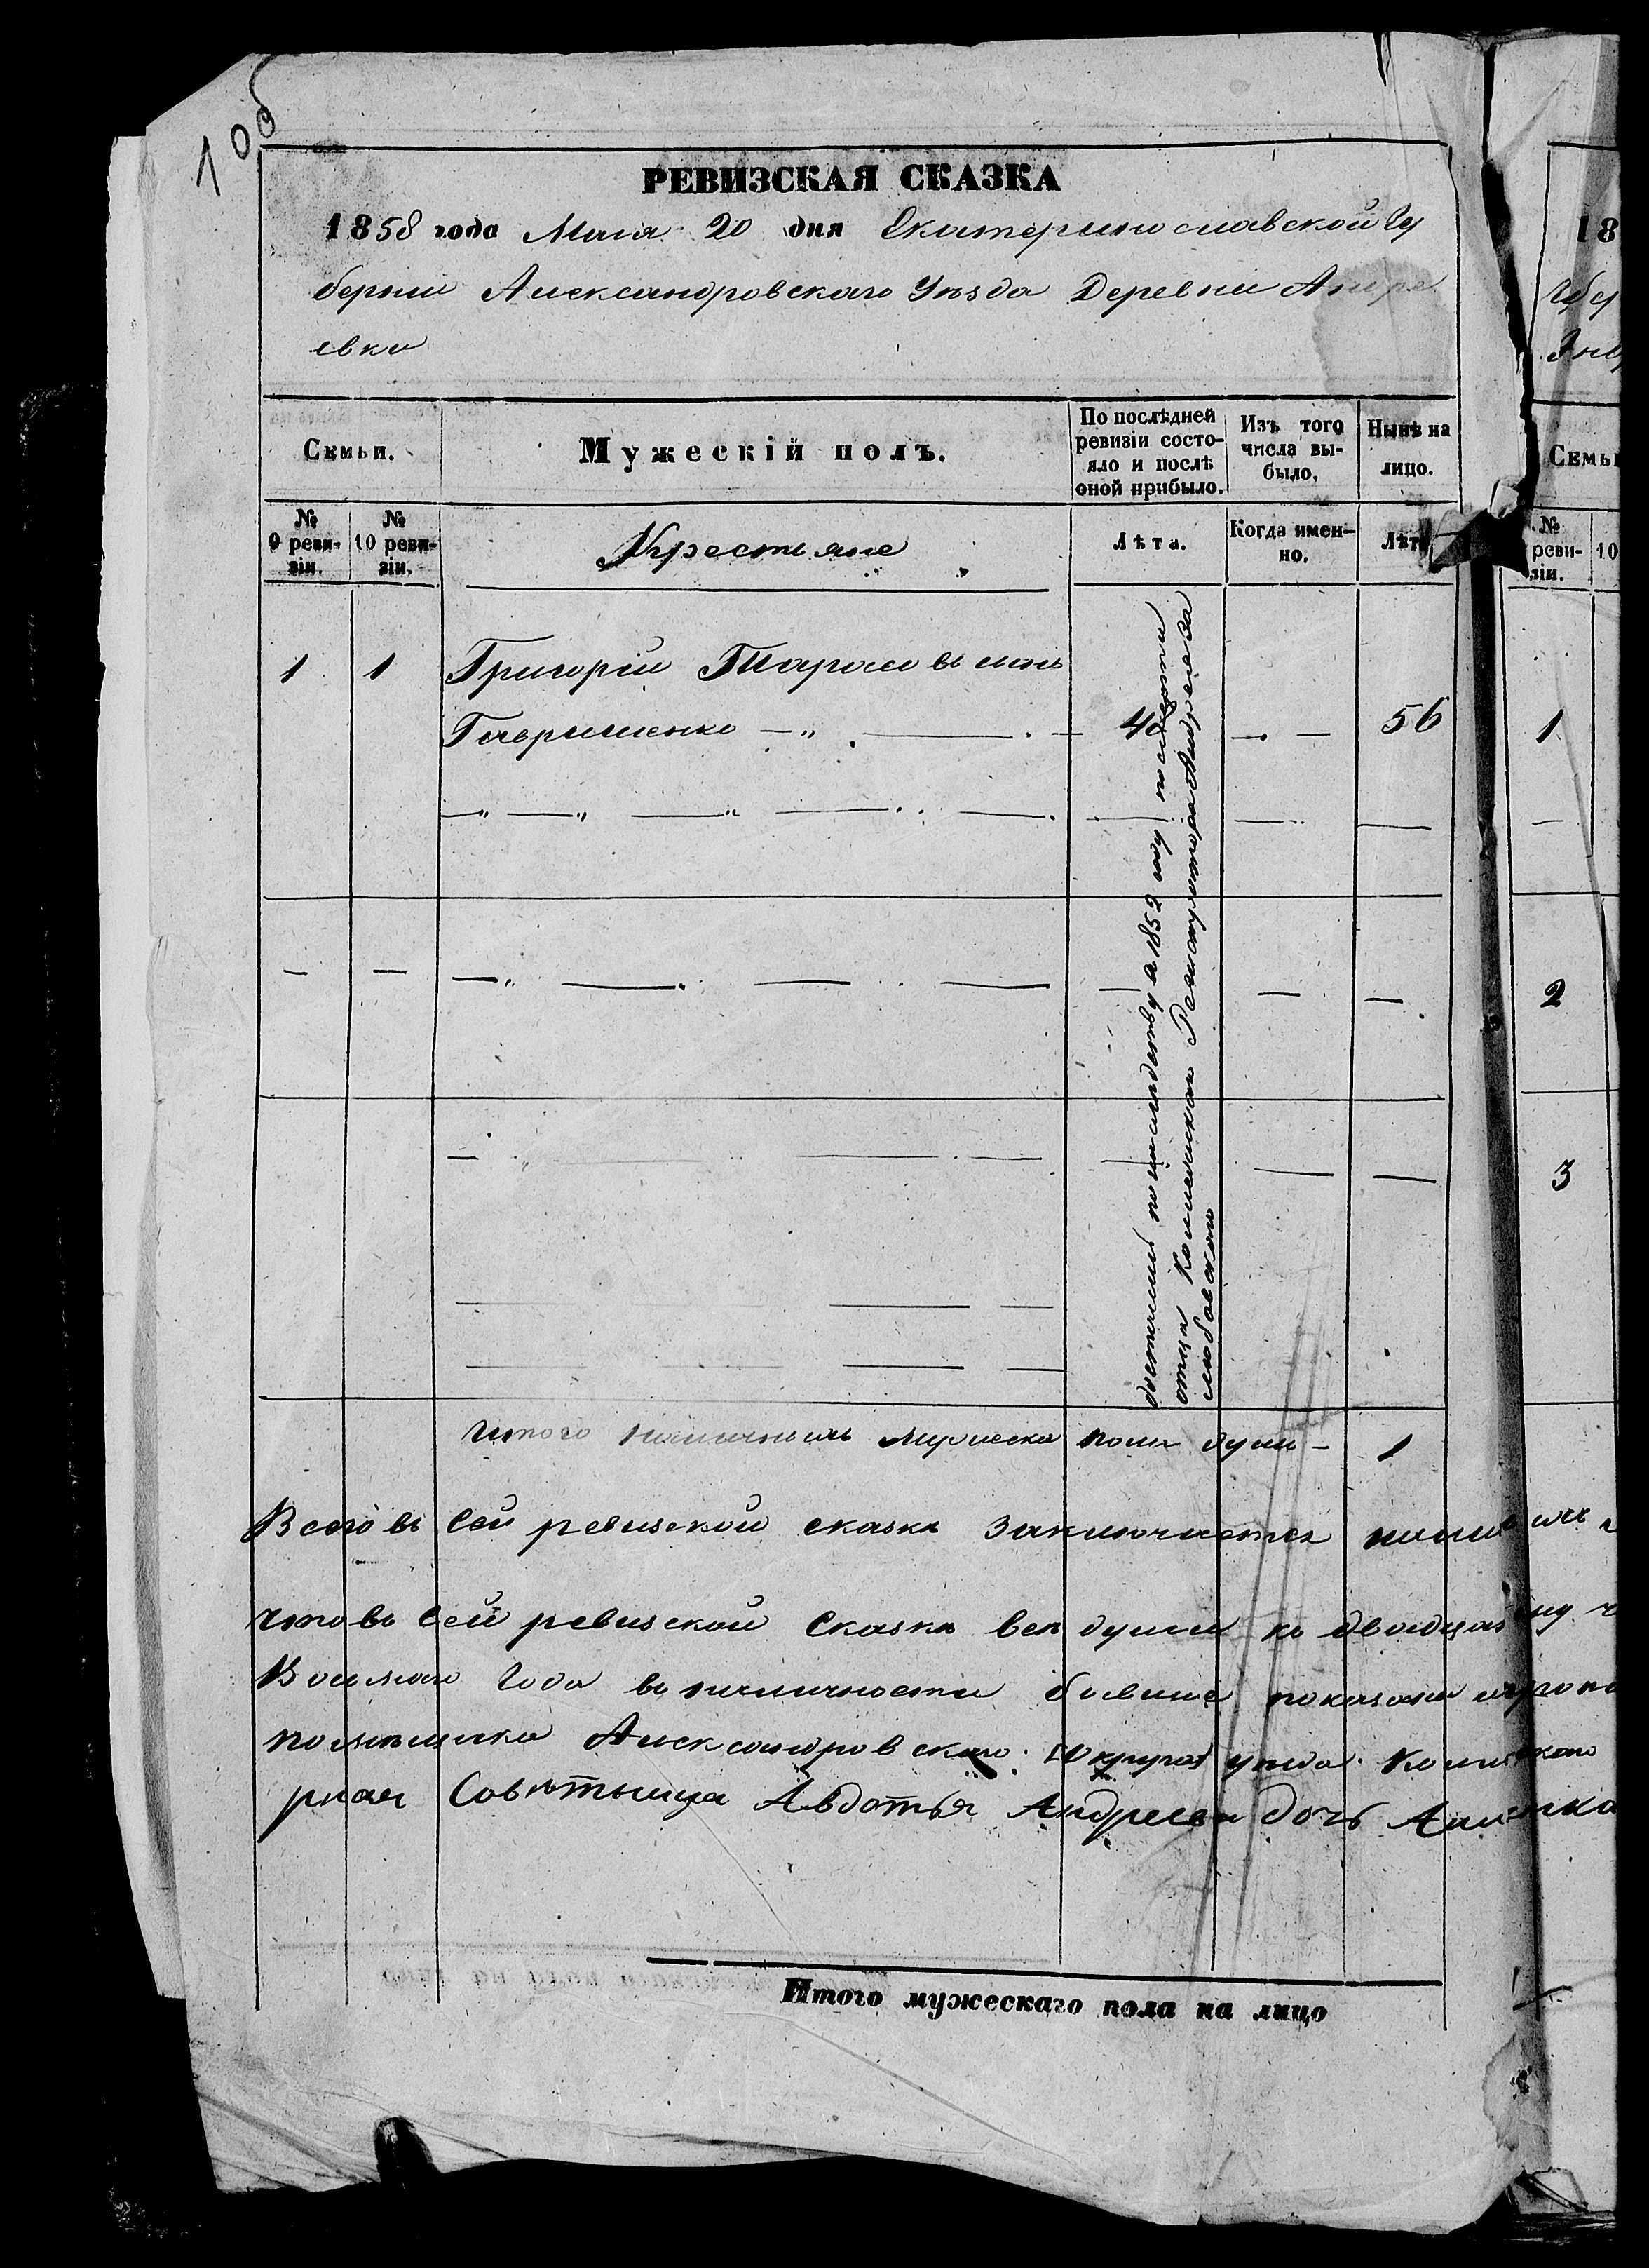 10об
РЕВИЗСКАЯ СКАЗКА
1858 года Мая 20 дня Екатеринославской Гу
берніи Александровскаго Уѣзда Деревни Андре
евки
Семьи.
Мужескій полъ.
По послѣдней ревизіи состо-
яло и послѣ
оной прибыло.
Изъ того
числа вы-
было.
Нынѣ на
лицо.
№
9 реви-
зіи.
№
10 реви-
зіи.
Крестьяне
Лѣта.
Когда имен-
но.
Лѣт
1 1 Григорій Тарасовъ сынъ
Гавришенко 40 56
доставшій по наслѣдству въ 1852 году по смерти
отца Колежскаго Регистратора Андрея За
любовскаго
Итого наличныхъ мужеска пола душъ – 1
Всего въ сей ревизской сказкѣ заключается
что въ сей ревизской сказкѣ всѣ души по двадцат
Восмаго года въ наличности бывшіе показаны
помѣщика Александровскаго [Округа] уѣзда
Совѣтница Авдотья Андреева дочь
Итого мужескаго пола на лицо
18
Губ
Семьи
№
реви-
зіи.
10
1
2
3